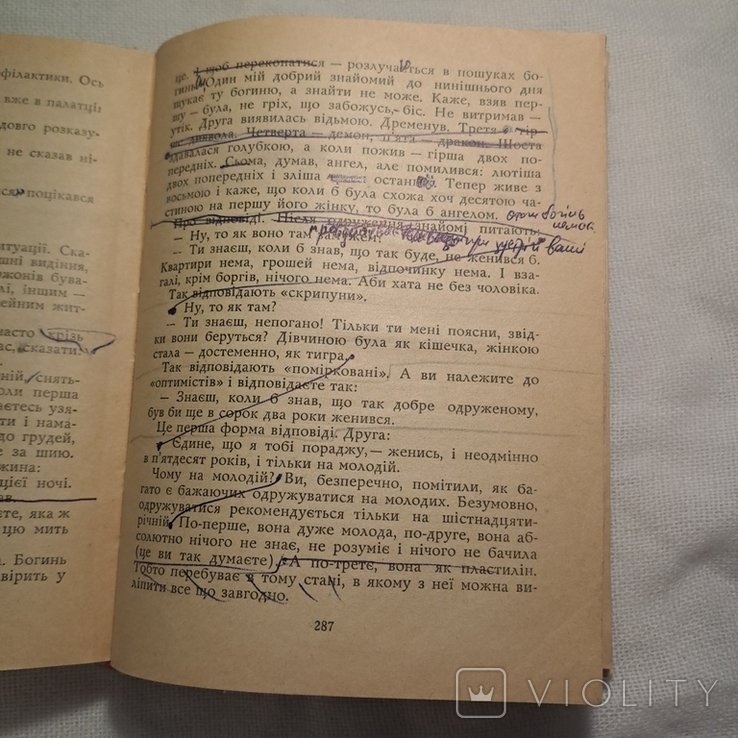 філактики. Ось
вже в палатці:
довго розказу-
не сказав ні-
поцікався
итуації. Ска-
шні видіння,
жонів бува-
лі, іншим —
ейним жит-
часто крізь
ас, сказати.
ній, снять-
оли перша
аєтесь узя-
и і нама-
до грудей,
е за шию.
жина:
цієї ночі.
ав.
єте, яка ж
цю мить
. Богинь
вірить у
це. І щоб переконатися — розлучається в пошуках бо-
гинь. Один мій добрий знайомий до нинішнього дня
шукає ту богиню, а знайти не може. Каже, взяв пер-
шу — була, не гріх, що забожусь, біс. Не витримав —
утік. Друга виявилась відьмою. Дременув. Третя — гір-
ше диявола. Четверта — демон, п'ята — дракон. Шоста
здавалася голубкою, а коли пожив — гірша двох по-
передніх. Сьома, думав, ангел, але помилився: лютіша
двох попередніх і зліша останньої. Тепер живе з
восьмою і каже, що коли б була схожа хоч десятою час-
тиною на першу його жінку, то була б ангелом.
богинь
немає
Про відповіді. Після одруження знайомі питають:
— Ну, то як воно там
ваші
— Ти знаєш, коли б знав, що так буде, не женився б.
Квартири нема, грошей нема, відпочинку нема. І вза-
галі, крім боргів, нічого нема. Аби хата не без чоловіка.
Так відповідають «скрипуни».
— Ну, то як там?
— Ти знаєш, непогано! Тільки ти мені поясни, звід-
ки вони беруться? Дівчиною була як кішечка, жінкою
стала — достеменно, як тигра.
Так відповідають «помірковані». А ви належите до
«оптимістів» і відповідаєте так:
— Знаєш, коли б знав, що так добре одруженому,
був би ще в сорок два роки женився.
Це перша форма відповіді. Друга:
— Єдине, що я тобі пораджу,— женись, і неодмінно
в п'ятдесят років, і тільки на молодій.
Чому на молодій? Ви, безперечно, помітили, як ба-
гато є бажаючих одружуватися на молодих. Безумовно,
одружуватися рекомендується тільки на шістнадцяти-
річній. По-перше, вона дуже молода, по-друге, вона аб-
солютно нічого не знає, не розуміє і нічого не бачила
(це ви так думаєте). А по-третє, вона як пластилін.
Тобто перебуває в тому стані, в якому з неї можна ви-
ліпити все що завгодно.
287
VIOLITY